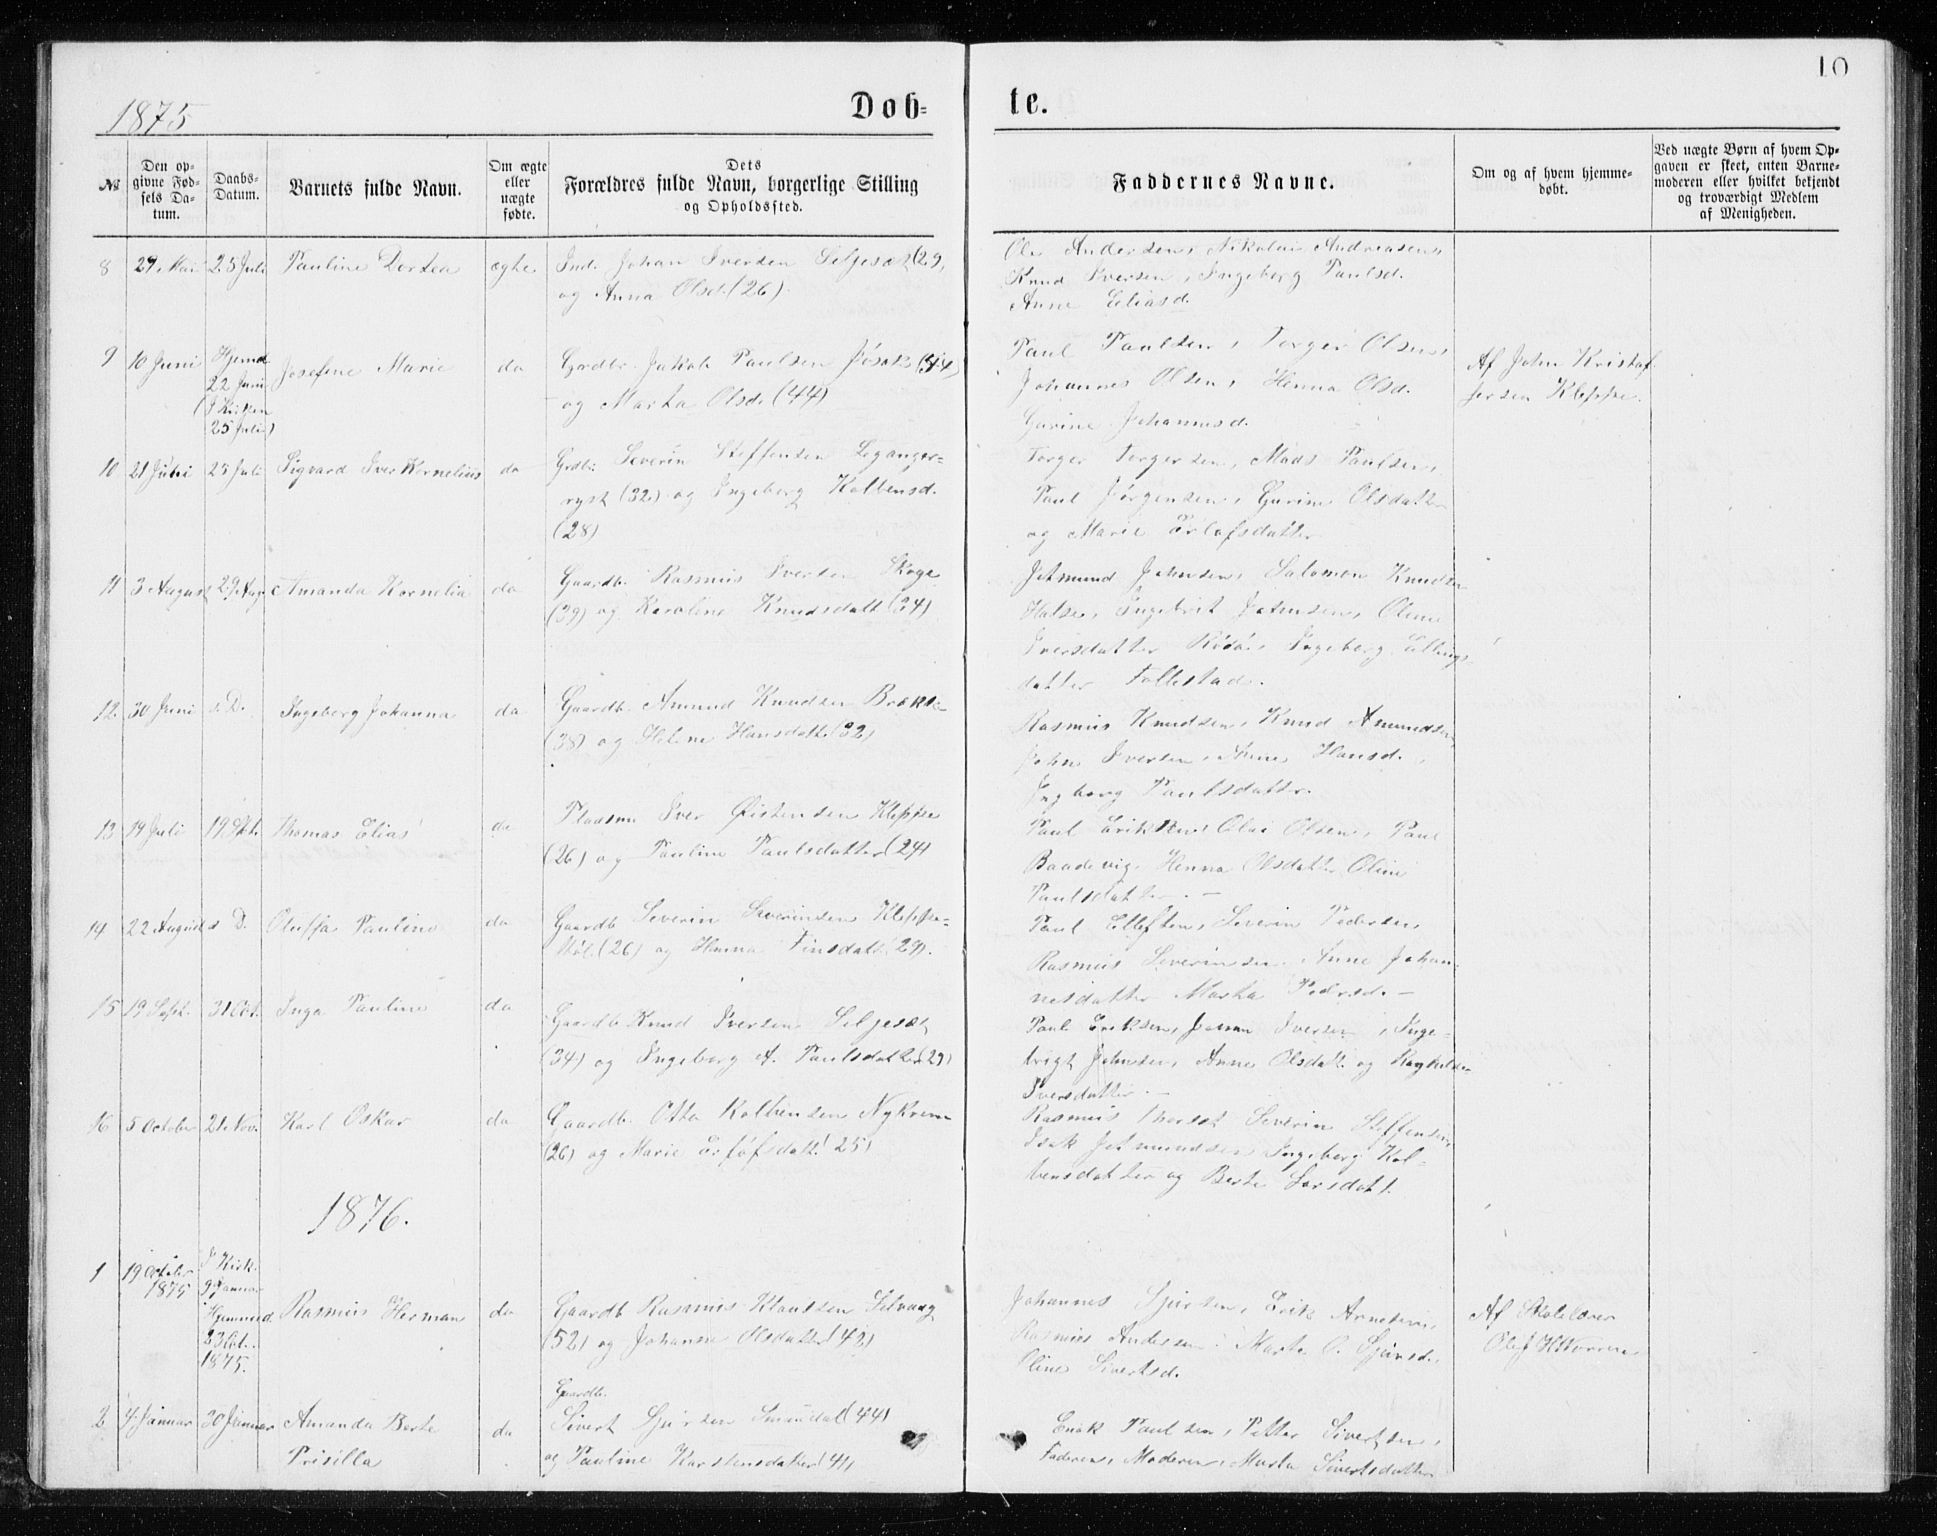 10
1875
Dob=
te.
№
Den op-
givne Fød-
sels Da-
tum.
Daabs-
Datum.
Barnets fulde Navn.
Om ægte
eller
uægte
fødte.
Dets
Forældres fulde Navn, borgerlige Stilling
og Opholdssted.
Faddernes Navne.
Om og af hvem hjemme-
døbt.
Ved uægte Børn af hvem Op-
gaven er skeet, enten Barne-
moderen eller hvilket bekjendt
og troværdigt Medlem
af Menigheden.
8 29 Mai 25 Juli Pauline Dortea ægte Ind. Johan Iversen Seljesæt (29)
og Anna Olsd. (26)
Ole Andersen, Nikolai Andreasen,
Knud Iversen, Ingeborg Paulsd.
Anne Eliasd.
9 10 Juni Hjemd.
22 Juni
(I Kirken
25 Juli)
Josefine Marie do Grdbr. Jakob Paulsen
og Marta Olsd. (44)
Paul Paulsen, Torger Olsen,
Johannes Olsen, Henna Olsd.
Gurine Johannesd.
Af John Kristof-
fersen Kleppe.
10 25 Juli Sigvard Iver Kornelius do Grdbr. Severin Steffensen Leganger-
(32) og Ingeborg Kolbensd.
(28)
Torger Torgersen, Mads Paulsen,
Paul Jørgensen, Gurine Olsdatter
og Marie Erlofsdatter
11 3 August 29 Aug Amanda Kornelia do Gaardb. Rasmus Iversen Skoge
(39) og Karoline Knudsdatt. (34)
Jetmund Johnsen, Salomon Knudsen
Halse, Ingebrit Johnsen, Oline
Iversdatter Ingeborg Ellings-
datter Follestad.
12. 30 Juni s. D. Ingeborg Johanna do Gaardb. Amund Knudsen
(38) og Helene Hansdatt. (32)
Rasmus Knudsen, Knud Amundsen
John Iversen, Anne Hansd.
Ingborg Paulsdatter.
13 19 Juli 19 Thomas Elias do Pladsm. Iver Østensen Kleppe
(26) og Pauline Paulsdatter (24)
Paul Eriksen, Olai Olsen, Paul
Baadsvig, Henna Olsdatter Oline
Paulsdatter. —
14 22 August s D. Oluffa Pauline do Gaardb. Severin Severinsen Kleppe-
(26) og Henna Finsdatt. (29).
Paul Elleftsen, Severin Pedersen,
Rasmus Severinsen. Anne Johan-
nesdatter Marta Pedersd. —
15 19 Sept. 31 Oct. Inga Pauline do Gaardb. Knud Iversen Seljesæt
(34) og Ingeborg A. Paulsdatter (29)
Paul Eriksen, Johan Iversen, Inge-
brigt Johnsen, Anne Olsdatt. og Ragnilde
Iversdatter. —
16 5 October 21. Nov. Karl Oskar do Gaardb. Otto Kolbensen Nykrem
(26) og Marie Erlofsdatt. (25)
Rasmus Severin Steffensen,
Isak Jetmundsen Ingeborg Kol-
bensdatter og Berte Larsdatt.
1876.
1 19 October
1875
I Kirk.
9 Januar
Hjemmed.
23 Oct.
1875.
Rasmus Herman do Gaardb. Rasmus Klausen Selvaag
(52) og Johanne Olsdatter (42)
Johannes Sjursen, Erik Arnesen,
Rasmus Andersen. Marta O. Sjursd.,
Oline Sivertsd.
Af Skolelærer
Olef
2 4 Januar 30 Januar Amanda Berte
Prisilla
do
Gaardb.
Sivert Sjursen Smaadal (44)
og Pauline Karstensdatter (41)
Enok Paulsen, Petter Sivertsen,
Faderen, Moderen, Marta Sivertsdatter